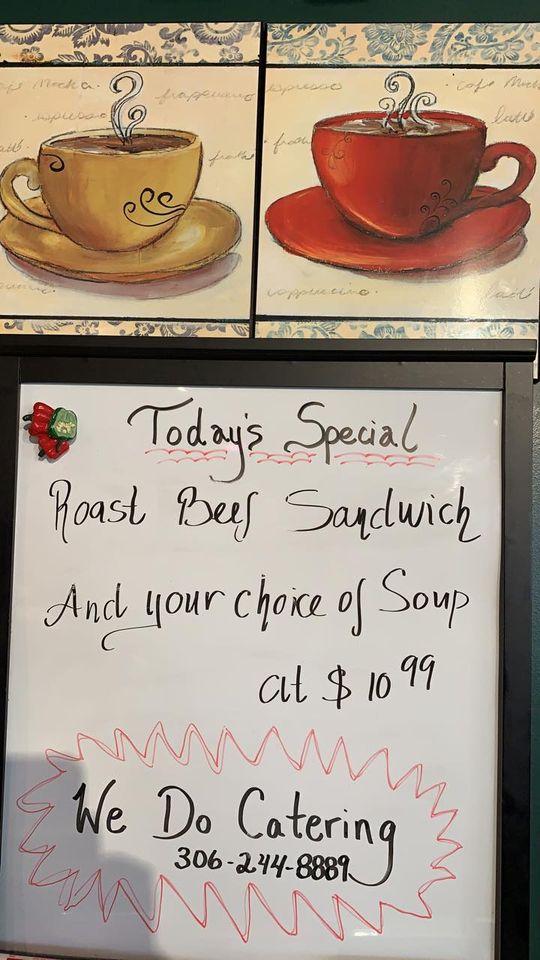 Café Mocha. frappucino espresso . Café Moch
. espresso latté
latté frothé . frothé
cappuccino. latté
Today's Special
Roast Beef Sandwich
And your choice of Soup
at $ 10 99
We Do Catering
306-244-8889